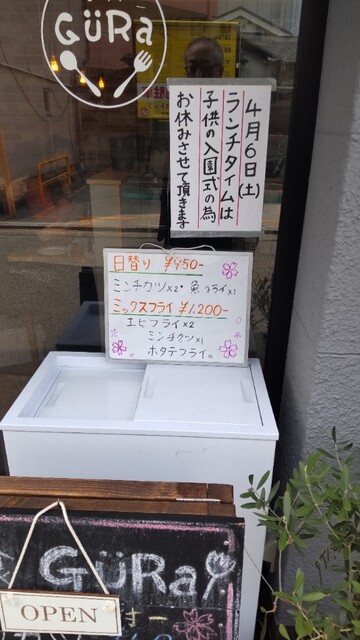 GÜRa
4月6日(土)
ランチタイムは
子供の入園式の為
お休みさせて頂きます
日替り ¥950-
ミンチカツ×2・魚フライ×1
ミックスフライ ¥1,200-
エビフライ×2
ミンチカツ×1
ホタテフライ×1
GÜRa
OPEN